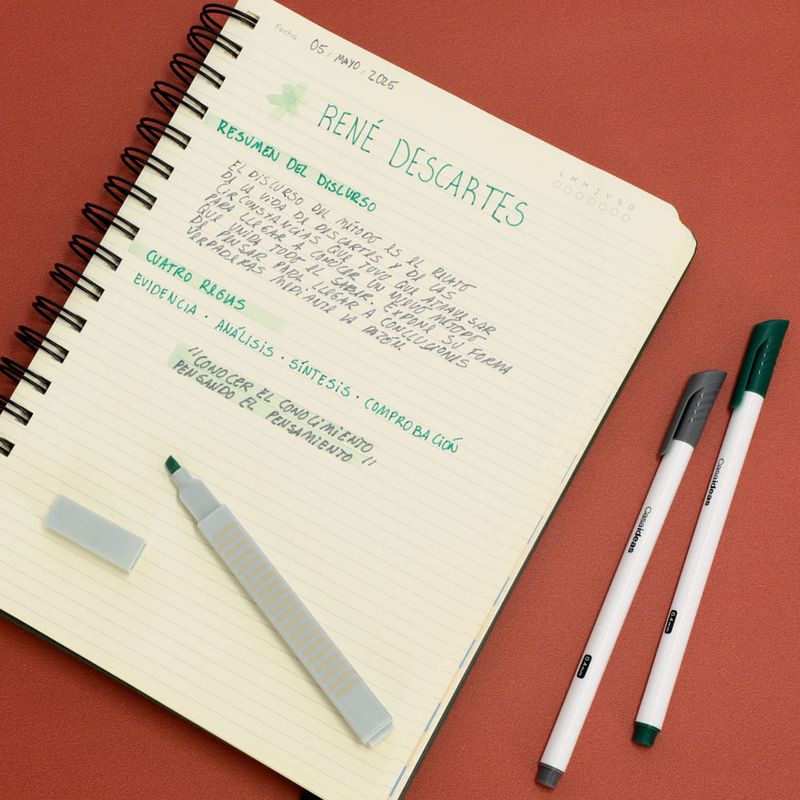 Fecha 05, MAYO, 2025
L M M J V S D
RENÉ DESCARTES
RESUMEN DEL DISCURSO
EL DISCURSO DEL MÉTODO ES EL RELATO
DE LA VIDA DE DESCARTES Y DE LAS
CIRCONSTANCIAS QUE TUVO QUE ATRAVESAR
PARA LLEGAR A CONOCER UN NUEVO MÉTODO
QUE UNIDA TODO EL SABER. EXPONE SU FORMA
DE PENSAR PARA LLEGAR A CONCLUSIONES
VERDADERAS MEDIANTE LA RAZÓN.
CUATRO REGLAS
EVIDENCIA · ANÁLISIS · SÍNTESIS · COMPROBACIÓN
"CONOCER EL CONOCIMIENTO
PENSANDO EL PENSAMIENTO"
Casaideas
0.4mm
Casaideas
0.4mm